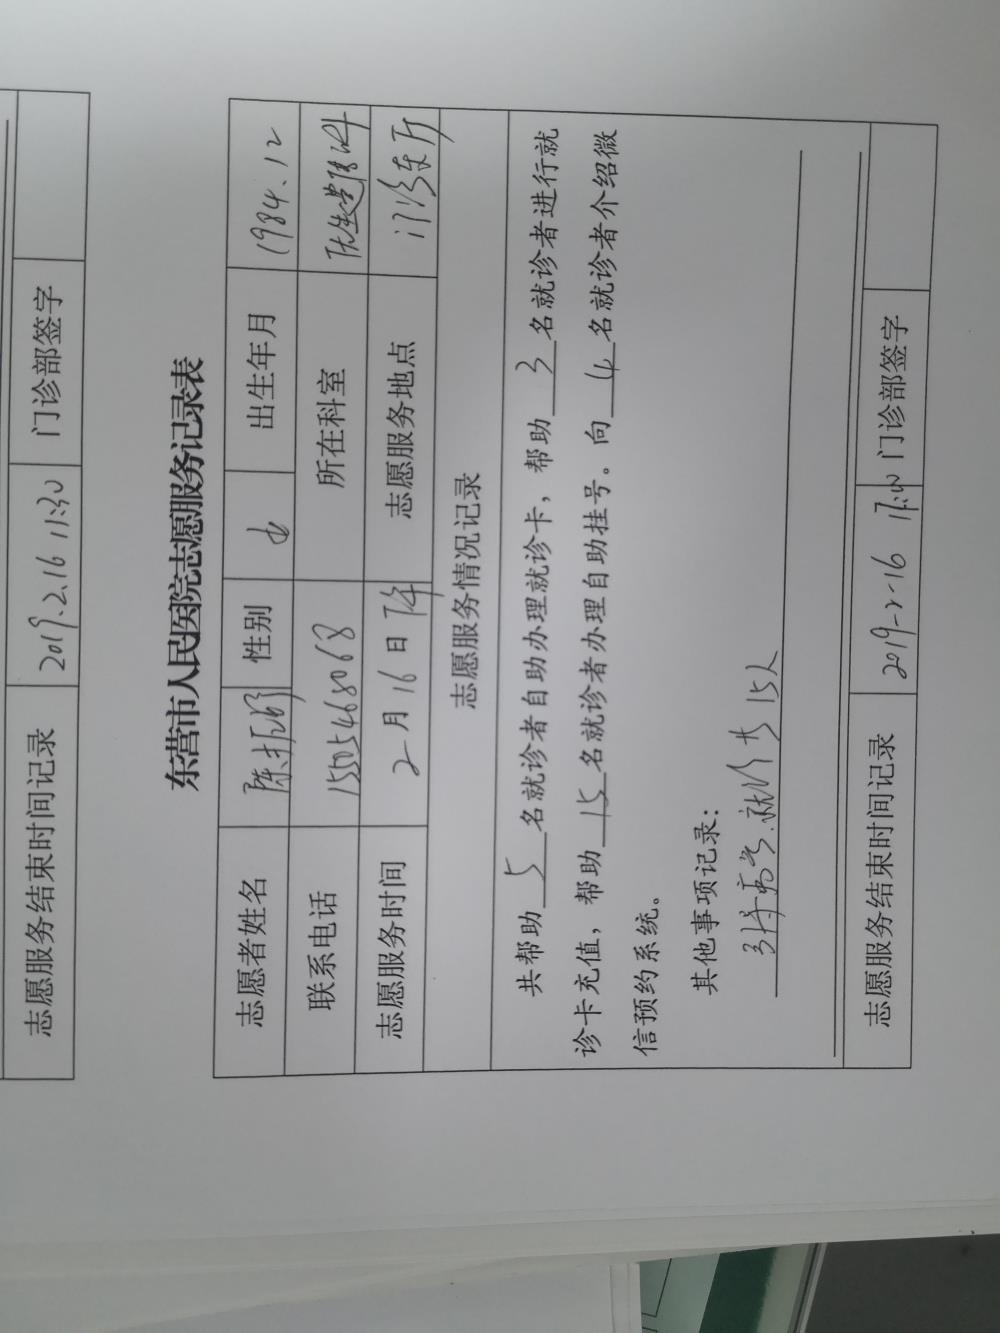 志愿服务结束时间记录 2019.2.16 11:30 门诊部签字
东营市人民医院志愿服务记录表
志愿者姓名 陈 性别 女 出生年月 1984.12
联系电话 15505468068 所在科室
志愿服务时间 2月16日下午 志愿服务地点 门诊东厅
志愿服务情况记录
共帮助 5 名就诊者自助办理就诊卡，帮助 3 名就诊者进行就
诊卡充值，帮助 15 名就诊者办理自助挂号。向 4 名就诊者介绍微
信预约系统。
其他事项记录：
就诊 15人
志愿服务结束时间记录 2019-2-16 17:00 门诊部签字